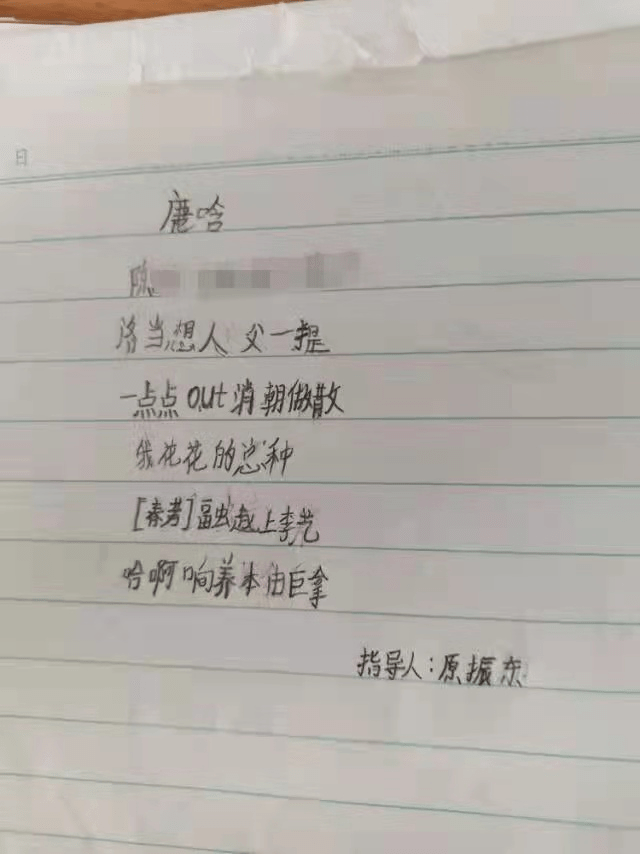 日
鹿晗
陈
洛当想人父一提
一点点out消朝做散
我花花的总种
[秦考]融赵上李艺
哈啊响养本由巨拿
指导人:原振东